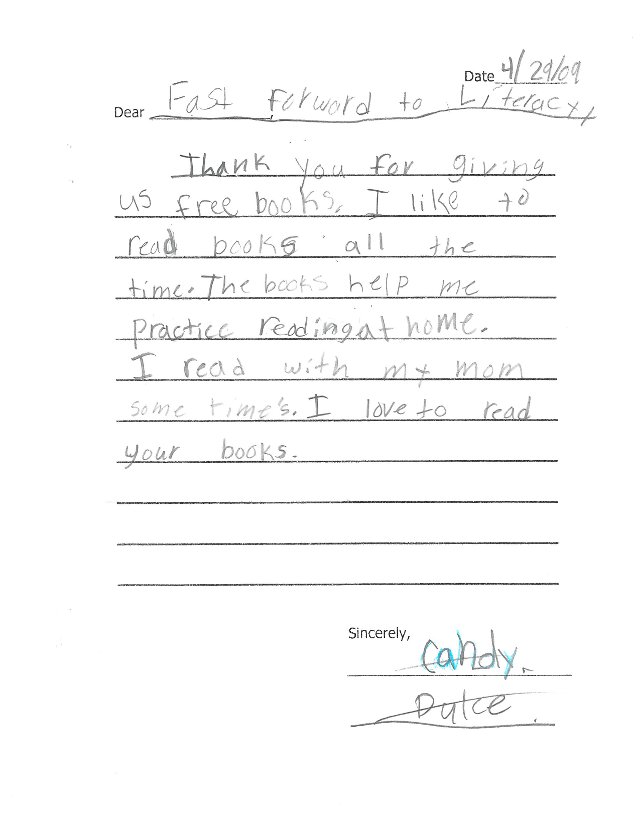 Date 4/29/09
Dear Fast forword to Literacy,
Thank you for giving
us free books. I like to
read books all the
time. The books help me
practice reading at home.
I read with my mom
some time's. I love to read
your books.
Sincerely,
Candy.
Dulce.